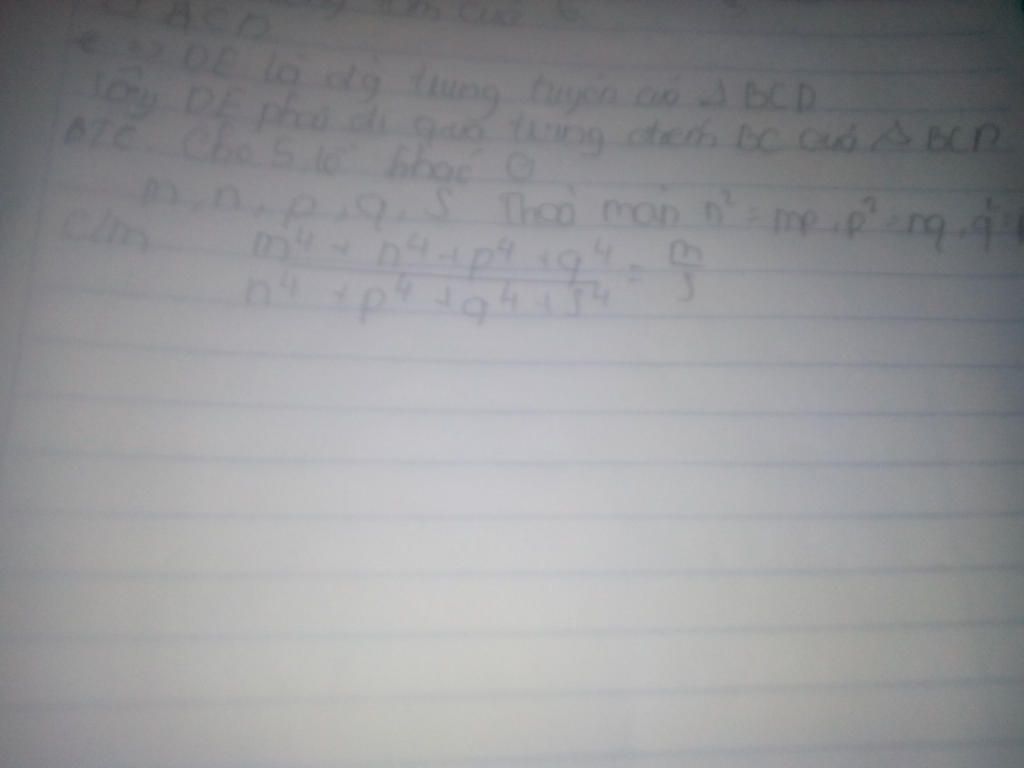 ACD
=> DE là đg trung tuyến của Δ BCD
Vậy DE phải đi qua trung điểm BC của Δ BCD
BTC. Cho 5 số khác 0
m, n, p, q, s Thoả mãn n² = mp, p² = nq, q² =
C/m m⁴ + n⁴ + p⁴ + q⁴ / n⁴ + p⁴ + q⁴ + s⁴ = m / s